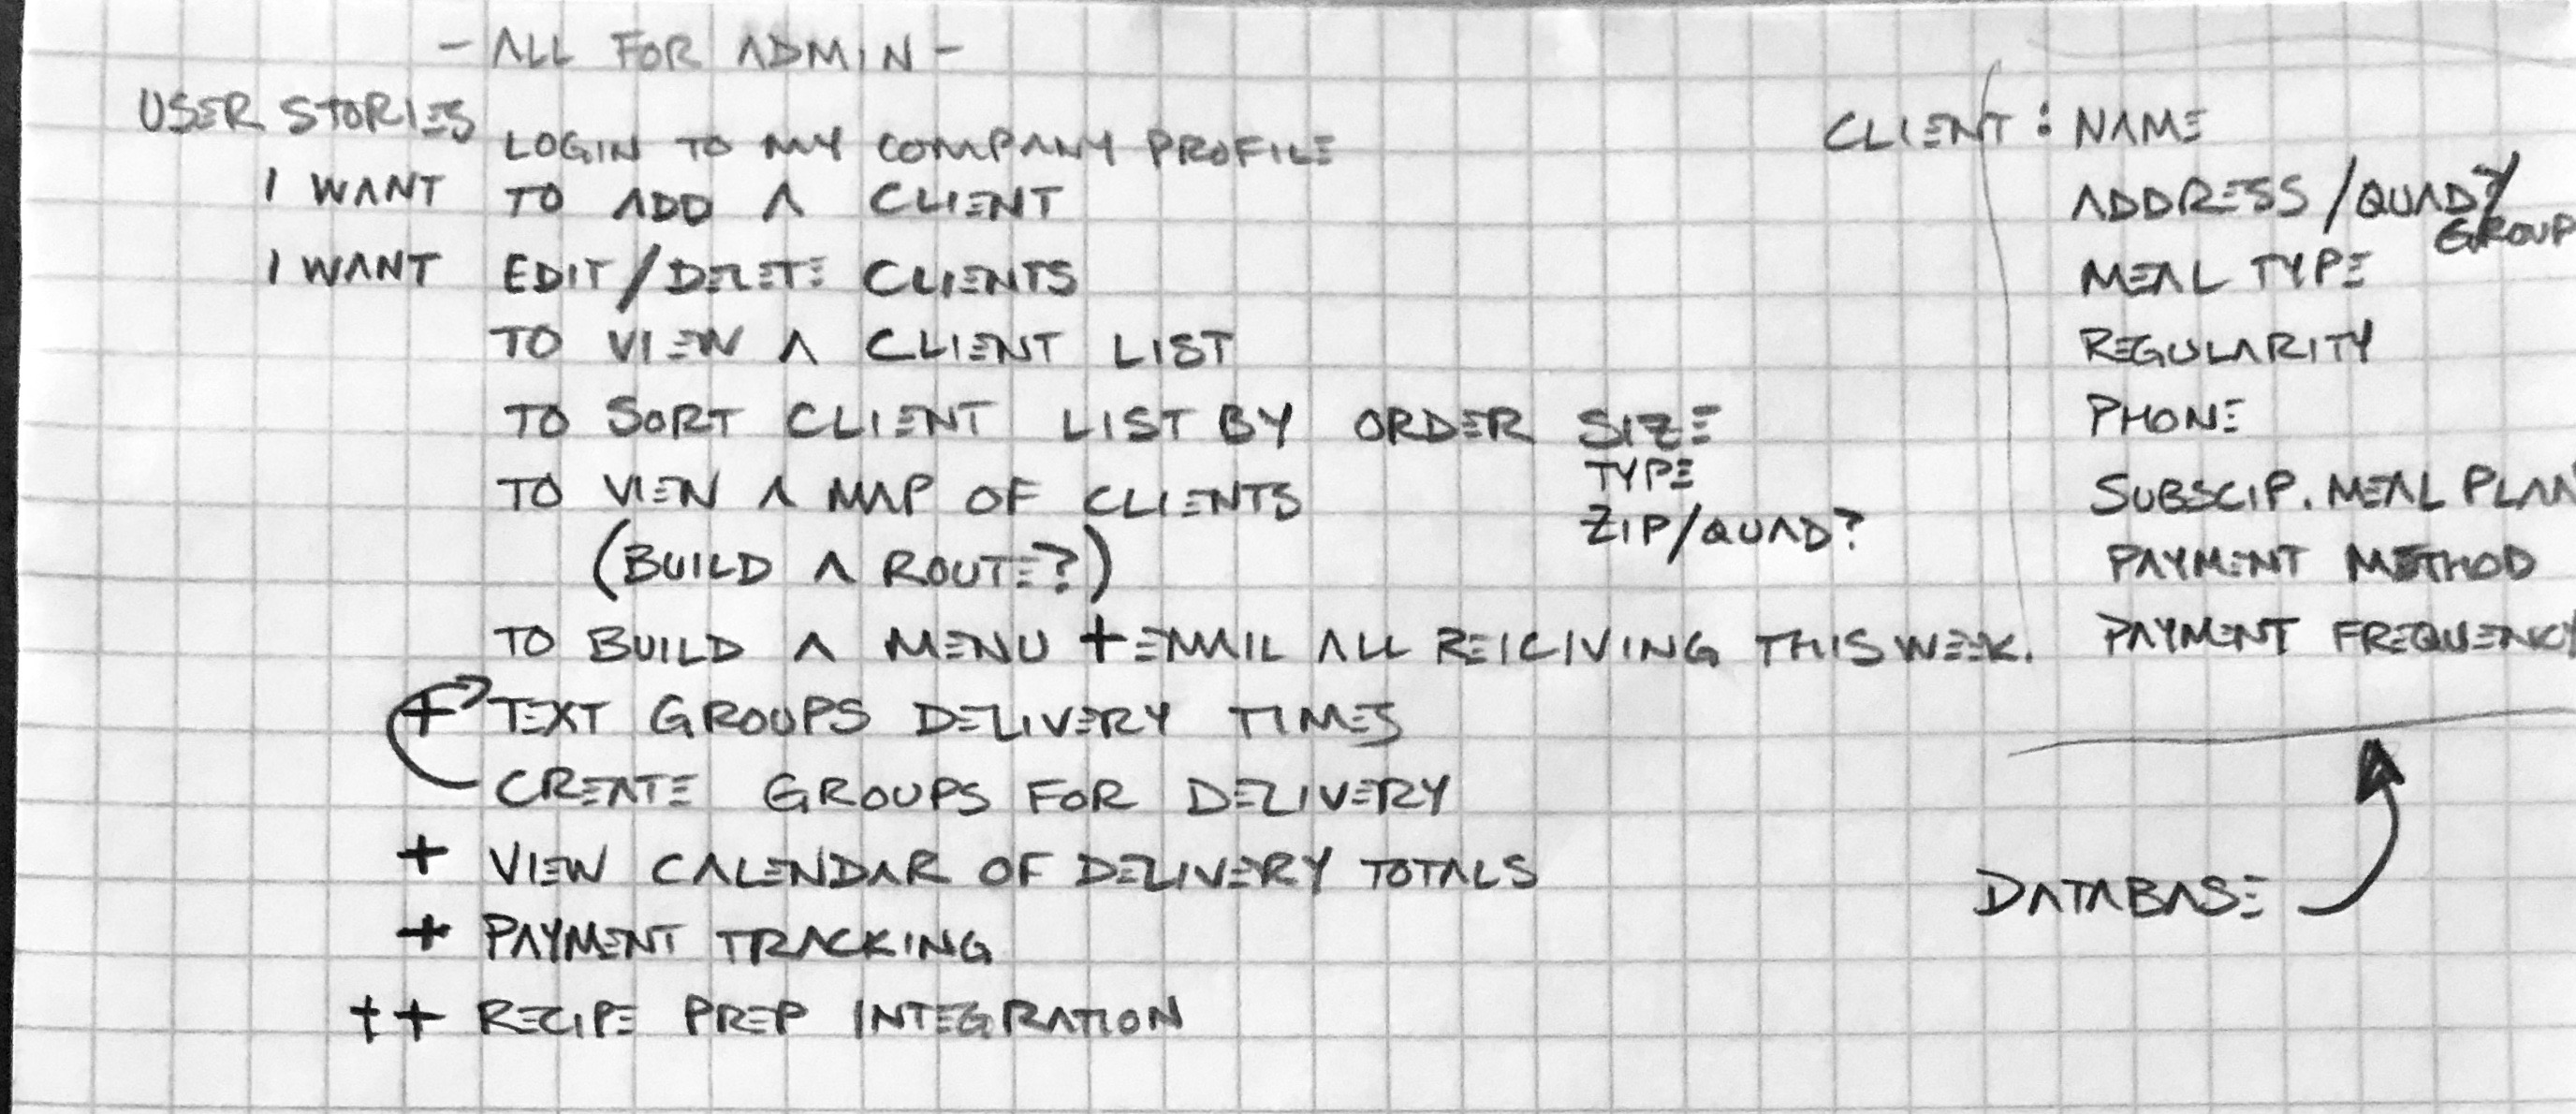 - ALL FOR ADMIN -
USER STORIES
LOGIN TO MY COMPANY PROFILE
I WANT TO ADD A CLIENT
I WANT EDIT/DELETE CLIENTS
TO VIEW A CLIENT LIST
TO SORT CLIENT LIST BY ORDER SIZE
TYPE
ZIP/QUAD?
TO VIEW A MAP OF CLIENTS
(BUILD A ROUTE?)
TO BUILD A MENU + EMAIL ALL REICIVING THIS WEEK.
+ TEXT GROUPS DELIVERY TIMES
CREATE GROUPS FOR DELIVERY
+ VIEW CALENDAR OF DELIVERY TOTALS
+ PAYMENT TRACKING
++ RECIPE PREP INTEGRATION
CLIENT : NAME
ADDRESS/QUAD?/
GROUP
MEAL TYPE
REGULARITY
PHONE
SUBSCIP. MEAL PLAN
PAYMENT METHOD
PAYMENT FREQUENCY
DATABASE